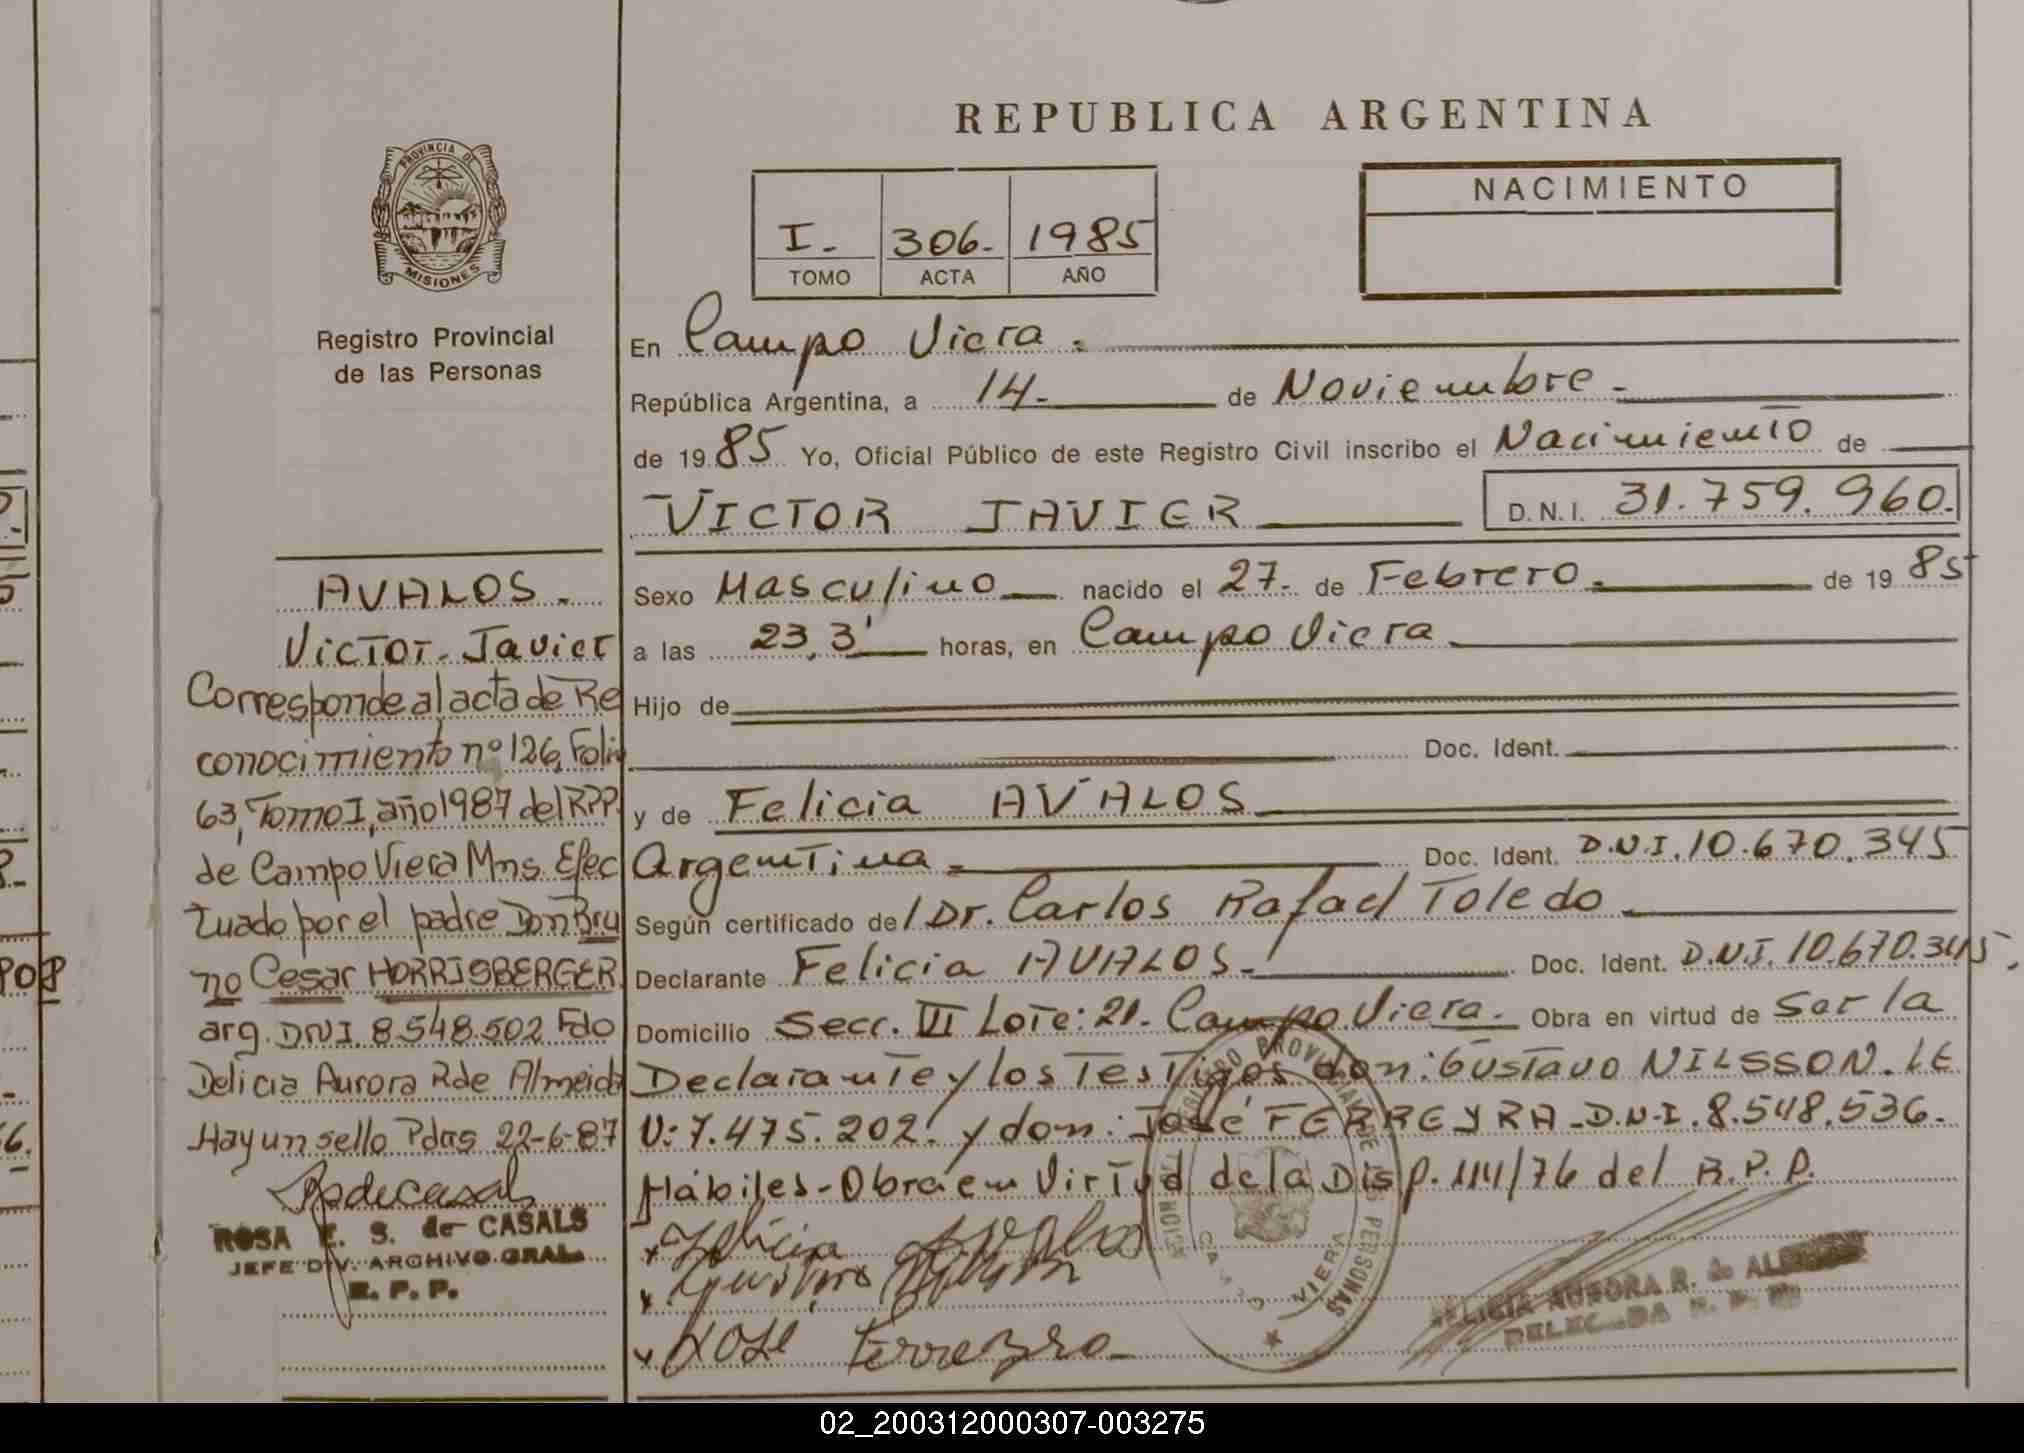 REPUBLICA ARGENTINA
PROVINCIA DE
MISIONES
Registro Provincial
de las Personas
I.- 306.- 1985
TOMO ACTA AÑO
NACIMIENTO
En Campo Viera.
República Argentina, a 14.- de Noviembre.-
de 19 85 Yo, Oficial Público de este Registro Civil inscribo el Nacimiento de
VICTOR JAVIER D.N.I. 31.759.960.-
Sexo Masculino nacido el 27.- de Febrero.- de 19 85
a las 23,3' horas, en Campo Viera
Hijo de
Doc. Ident.
y de Felicia AVALOS
Argentina.- Doc. Ident. D.N.I. 10.670.345
Según certificado de/ Dr. Carlos Rafael Toledo
Declarante Felicia AVALOS.- Doc. Ident. D.N.I. 10.670.345.
Domicilio Secc. VI Lote: 21.- Campo Viera.- Obra en virtud de Ser la
Declarante y los Testigos don: Gustavo NILSSON. LE
N: 7.475.202. y don: José FERREYRA-D.N.I. 8.548.536.-
Hábiles-Obra en Virtud de la Disp. 114/76 del R.P.P.
Felicia Avalos
Gustavo Nilsson
José Ferreyra
REGISTRO PROVINCIAL DE LAS PERSONAS
CAMPO VIERA
FELICIA AURORA R. de
DELEGADA R. P. P.
AVALOS.-
Victor-Javier
Corresponde al acta de Re
conocimiento nº 126, Folio
63, Tomo I, año 1987 del RPP.
de Campo Viera Mns. Efec
tuado por el padre Don Bru
no Cesar HORRISBERGER
arg. DNI. 8.548.502 Fdo
Delicia Aurora R de Almeida
Hay un sello Pdas 22-6-87
ROSA E. S. de CASALS
JEFE DIV. ARCHIVO GRAL.
R. P. P.
02_200312000307-003275